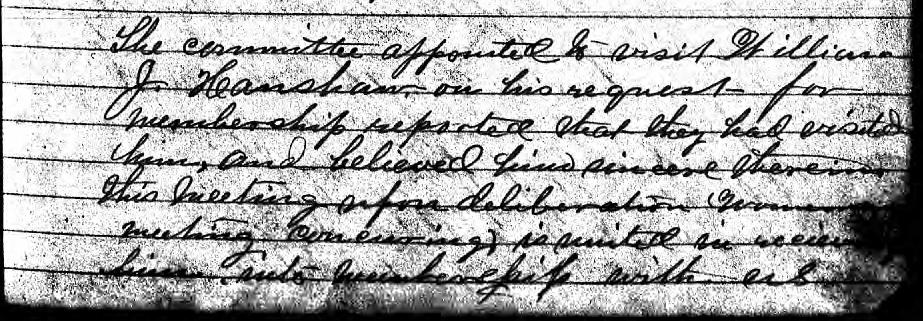 The committee appointed to visit William
J. Hanshaw on his request for
membership reported that they had visited
him, and believed him sincere therein,
this meeting upon deliberation (Womens
meeting concuring) is united in receiving
him into membership with us